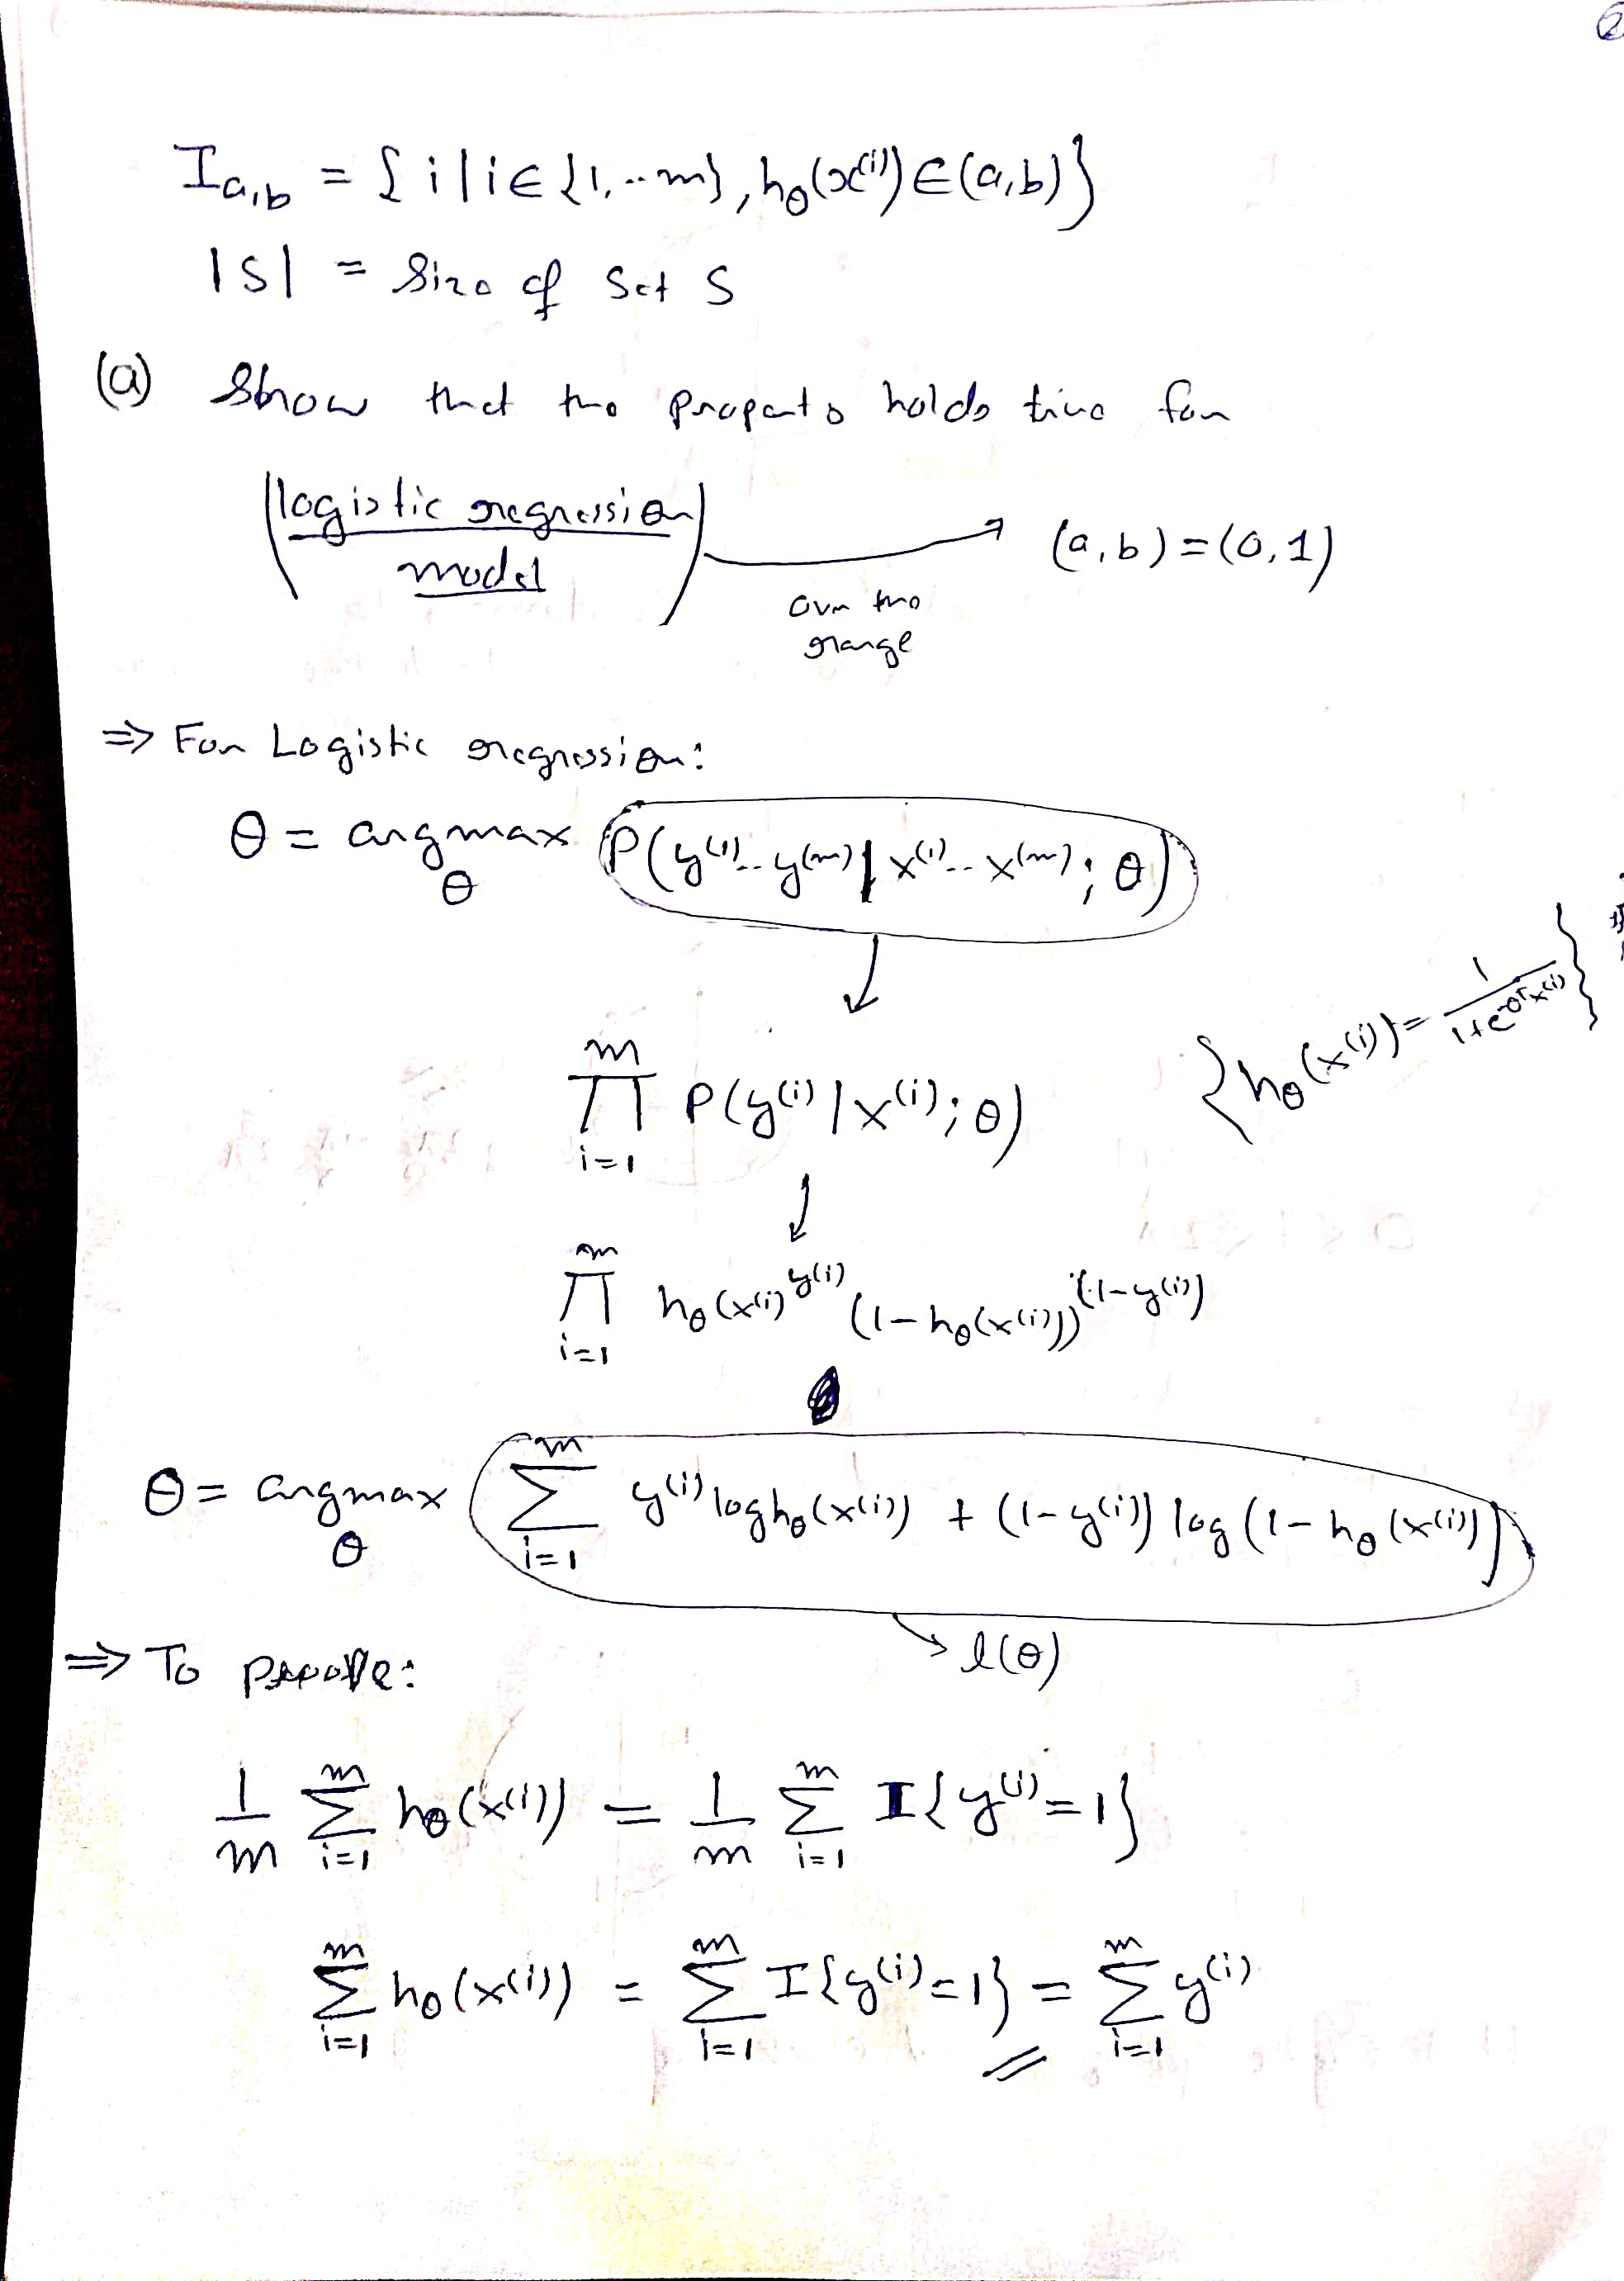 2
I_{a,b} = { i | i ∈ {1,..m}, h_θ(x^{(i)}) ∈ (a,b) }
|S| = Size of Set S
(a) Show that the property holds true for
(logistic regression → (a,b) = (0,1)
model)
over the
range
⇒ For Logistic regression:
θ = argmax_θ P(y^{(1)}..y^{(m)} | x^{(1)}..x^{(m)}; θ)
↓
{ h_θ(x^{(i)}) = 1/(1+e^{-θ^T x^{(i)}}) }
∏_{i=1}^{m} P(y^{(i)} | x^{(i)}; θ)
↓
∏_{i=1}^{m} h_θ(x^{(i)})^{y^{(i)}} (1-h_θ(x^{(i)}))^{(1-y^{(i)})}
θ = argmax_θ ( ∑_{i=1}^{m} y^{(i)} log h_θ(x^{(i)}) + (1-y^{(i)}) log (1-h_θ(x^{(i)})) )
→ l(θ)
⇒ To prove:
1/m ∑_{i=1}^{m} h_θ(x^{(i)}) = 1/m ∑_{i=1}^{m} I{y^{(i)}=1}
∑_{i=1}^{m} h_θ(x^{(i)}) = ∑_{i=1}^{m} I{y^{(i)}=1} = ∑_{i=1}^{m} y^{(i)}